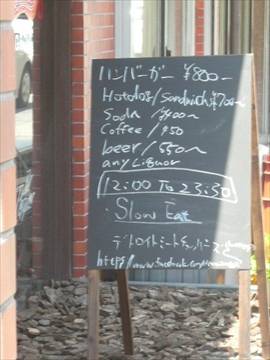 ハンバーガー ¥800〜
Hotdog/Sandwich ¥700〜
Soda /¥400〜
Coffee /450
beer/550〜
any Liquor
12:00 To 23:30
Slow Eat
デトロイトミートチョッパーズ
https://www.facebook.com/